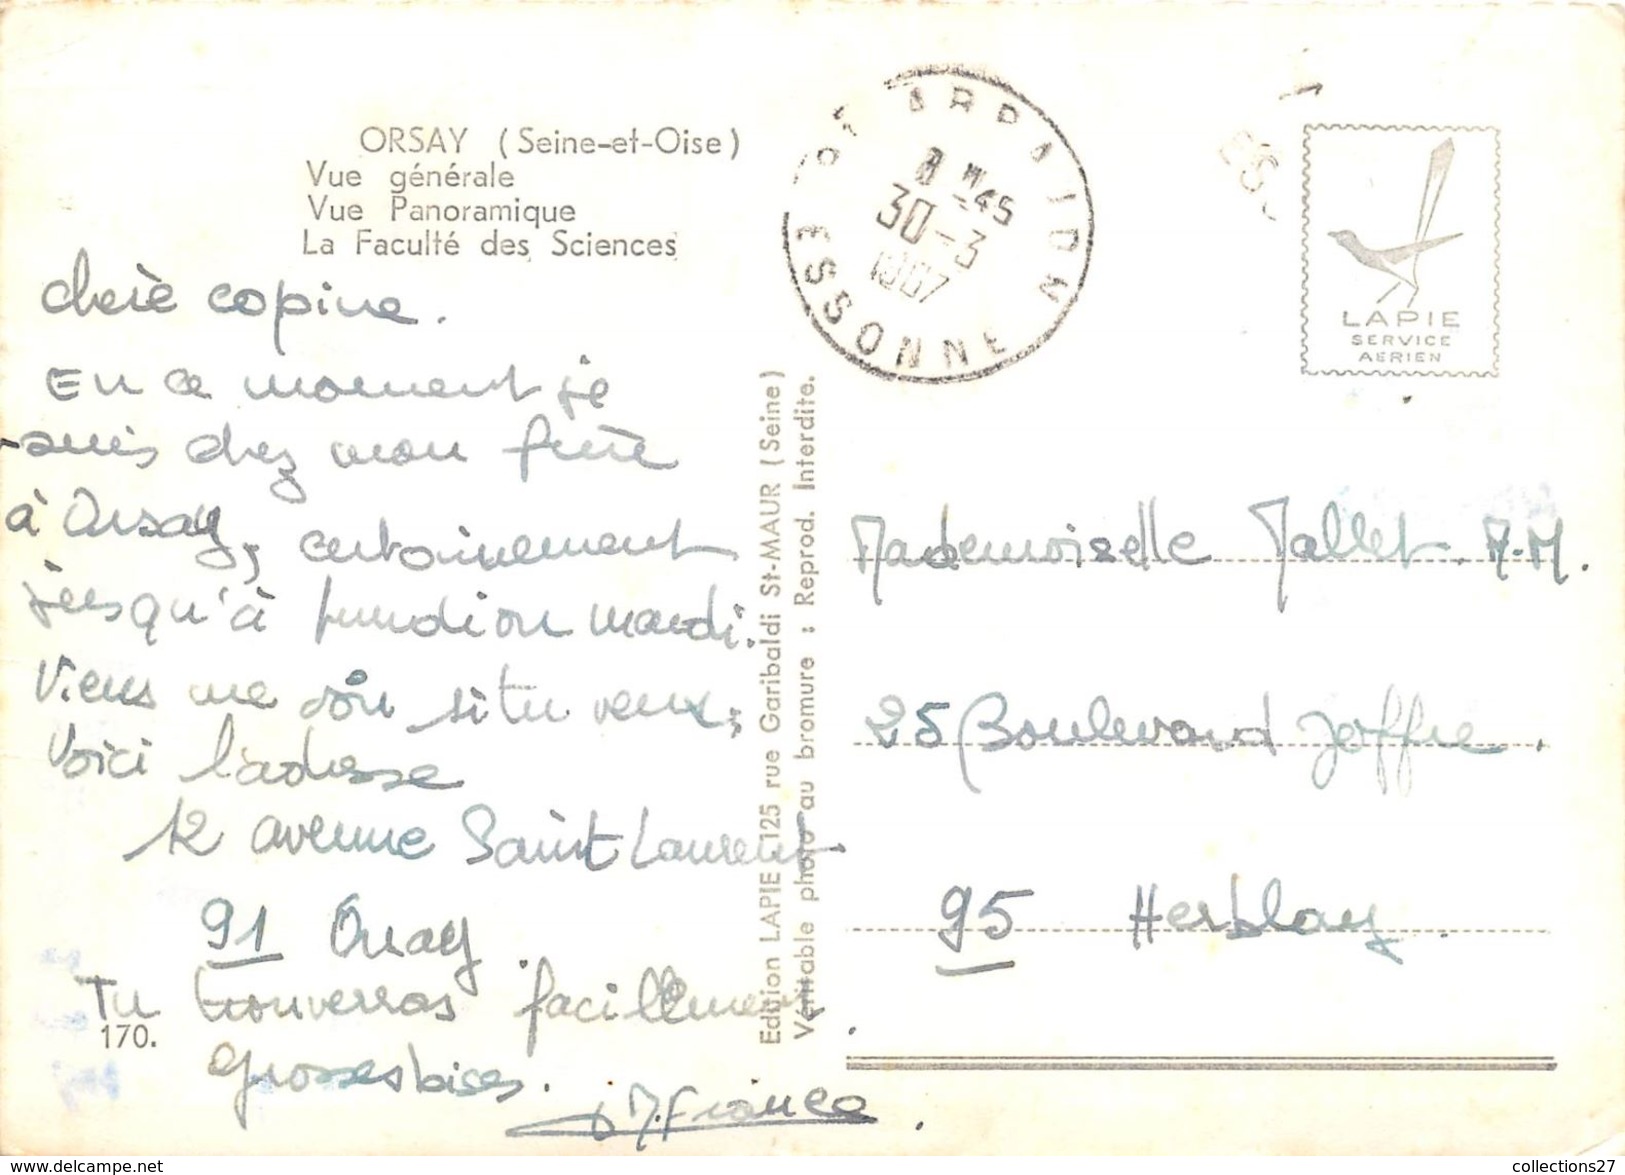 ORSAY (Seine-et-Oise)
Vue générale
Vue Panoramique
La Faculté des Sciences
chère copine.
En ce moment je
suis chez mon frère
à Orsay, certainement
jusqu'à lundi ou mardi.
Viens me voir si tu veux,
Voici l'adresse
12 avenue Saint Laurent
91 Orsay.
Tu trouveras facilement.
Grosses bises.
M. France
170.
Edition LAPIE 125 rue Garibaldi St-MAUR (Seine)
Véritable photo au bromure : Reprod. Interdite.
91 ARPAJON
8H45
30-3
ESSONNE
LAPIE
SERVICE
AERIEN
Mademoiselle Mallet M.M.
25 Boulevard Joffre.
95 Herblay.
collections27